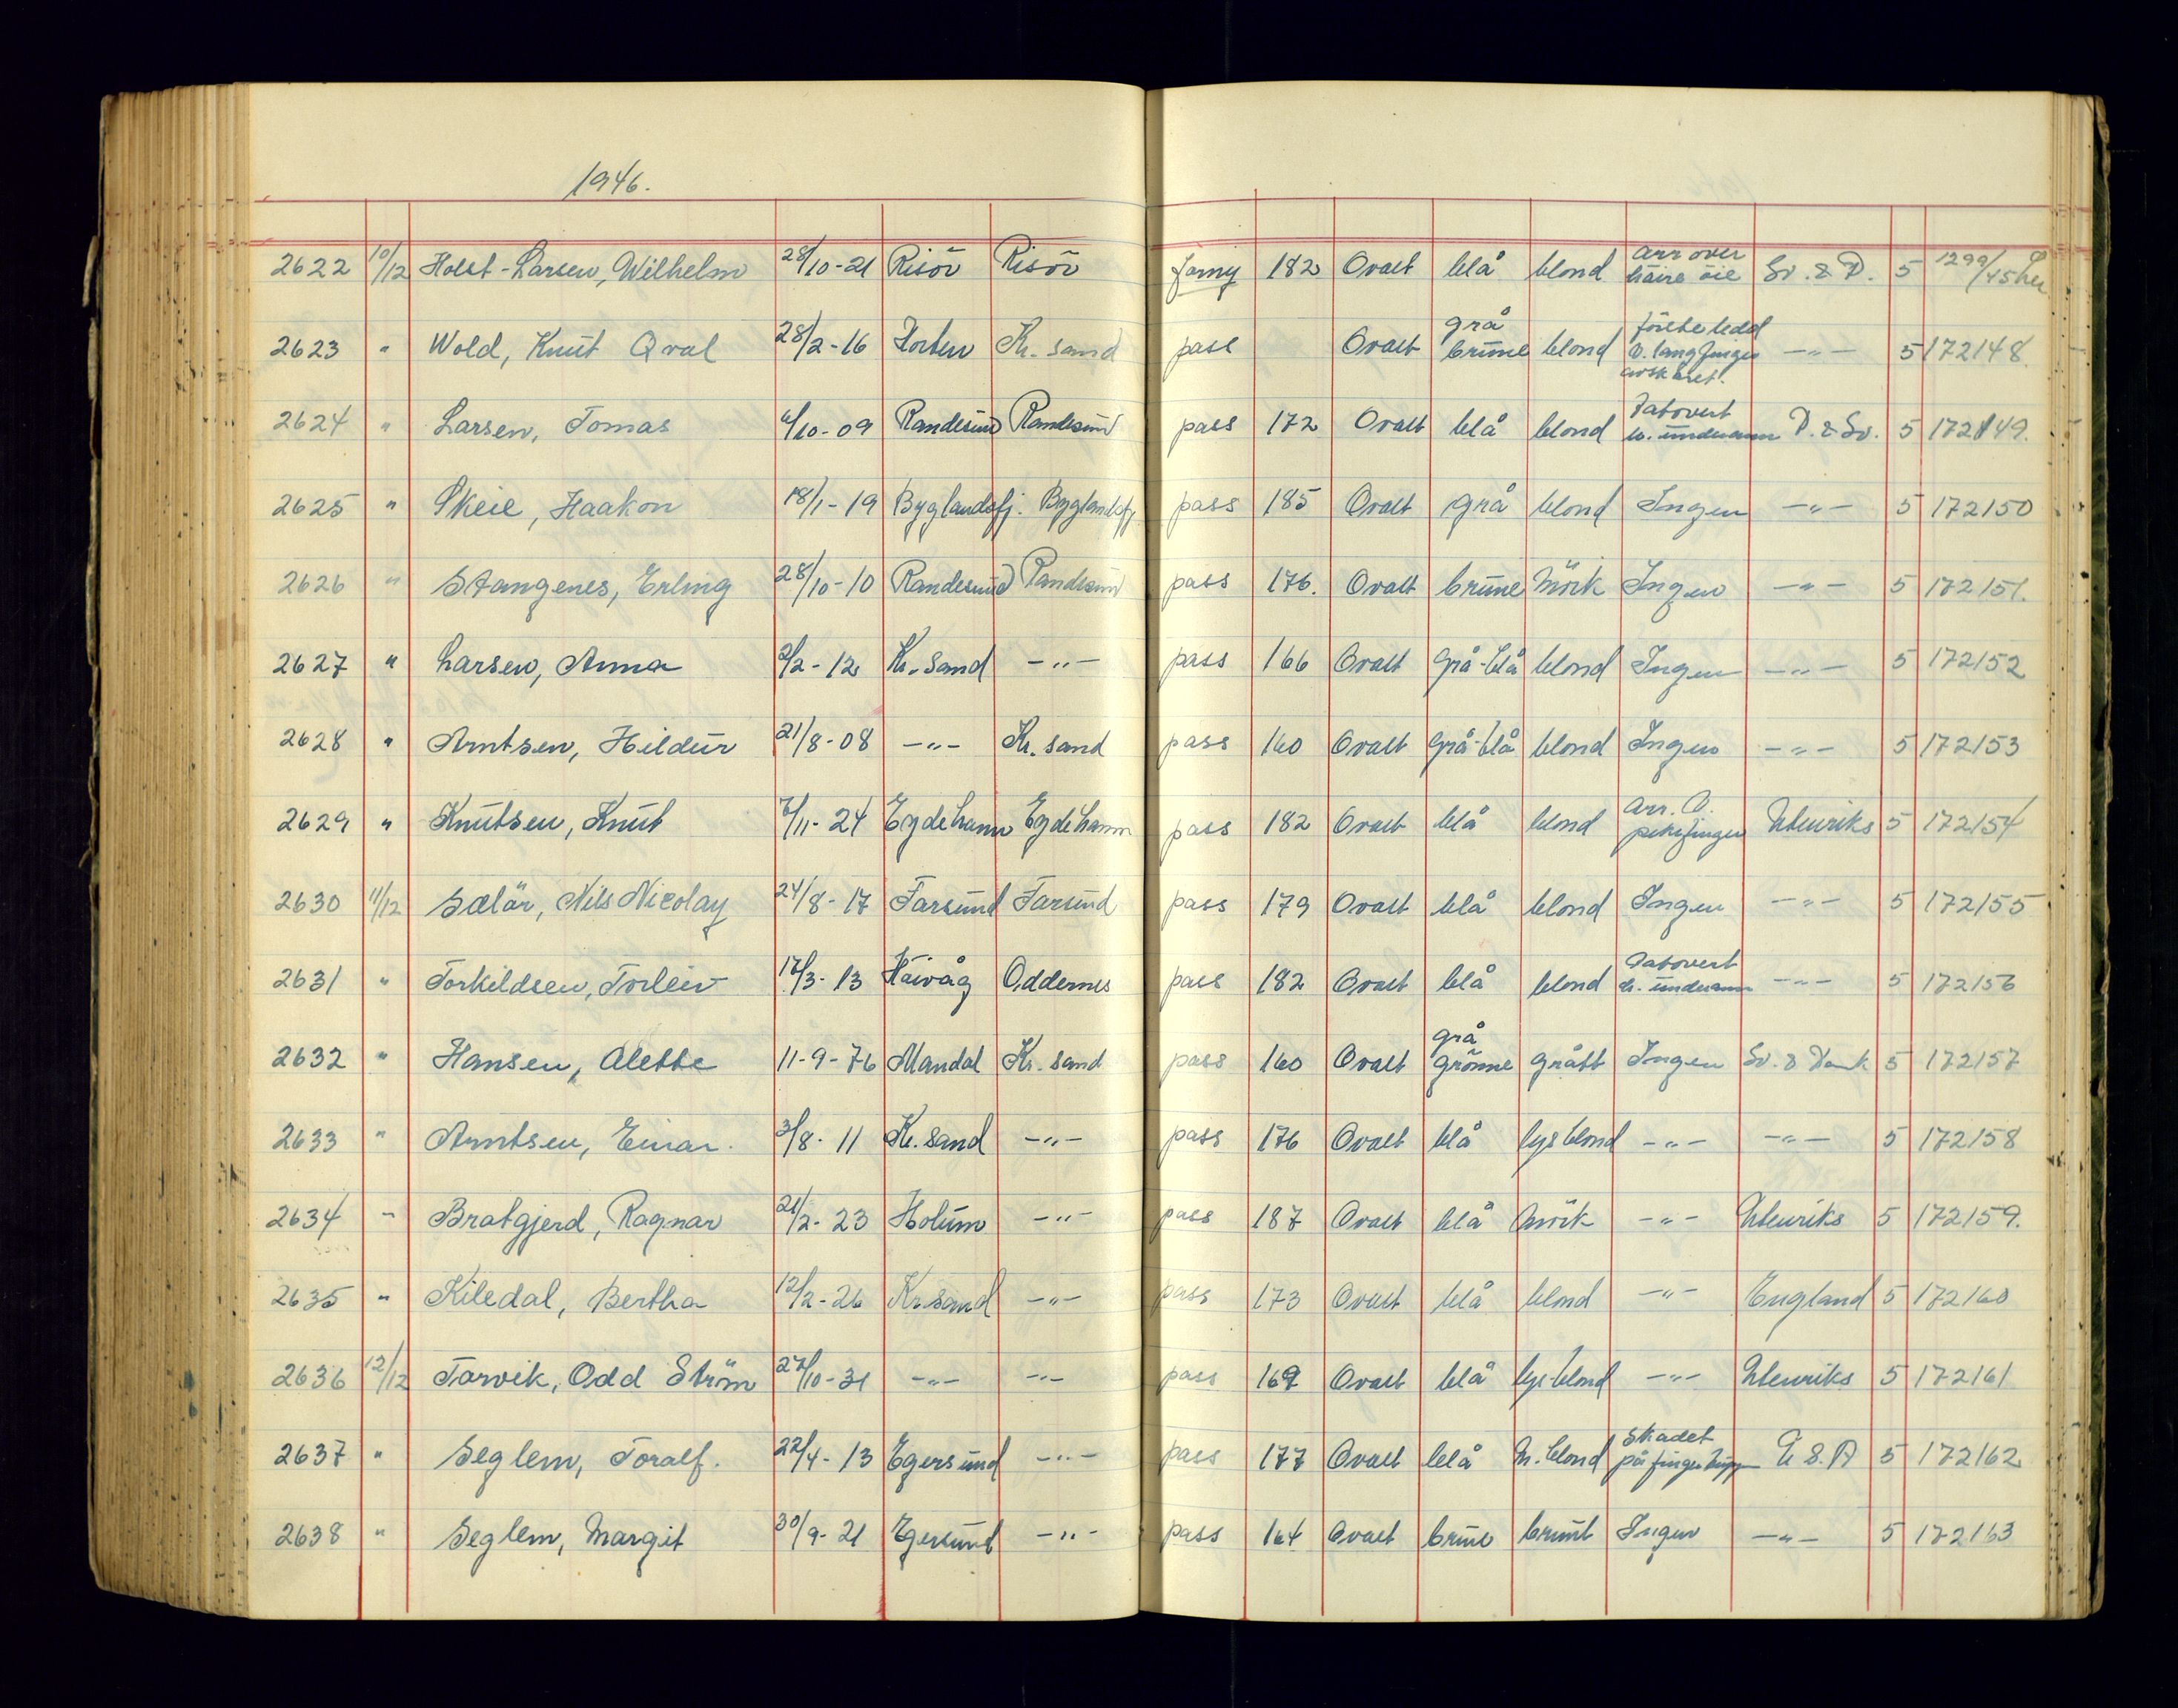 1946.
2622 10/12 Holst-Larsen, Wilhelm 28/10-21 Risör Risör forny 182 Ovalt blå blond arr over höire öie Sv. & D. 5 1299/45
2623 " Wold, Knut Qval 28/2-16 Horten Kr. sand pass Ovalt grå brune blond långfinger -"- 5 172148
2624 " Larsen, Tomas /10-09 Randesund Randesund pass 172 Ovalt blå blond Tatovert underarm D. & Sv. 5 172149.
2625 " Skeie, Haakon 18/1-19 Byglandsfj. Byglandsfj. pass 185 Ovalt grå blond Ingen -"- 5 172150
2626 " Stangenes, Erling 28/10-10 Randesund Randesund pass 176. Ovalt brune Mörk Ingen -"- 5 172151.
2627 " Larsen, Anna 2/2-12 Kr. sand -"- pass 166 Ovalt grå-blå blond Ingen -"- 5 172152
2628 " Arntsen, Hildur 21/8-08 -"- Kr. sand pass 160 Ovalt grå-blå blond Ingen -"- 5 172153
2629 " Knutsen, Knut 7/11-24 Eydehamn Eydehamn pass 182 Ovalt blå blond arr. v. pekefinger Utenriks 5 172154
2630 11/12 Sælör, Nils Nicolay 24/8-17 Farsund Farsund pass 179 Ovalt blå blond Ingen -"- 5 172155
2631 " Torkildsen, Torleiv 17/3-13 Höivåg Oddernes pass 182 Ovalt blå blond Tatovert h. underarm -"- 5 172156
2632 " Hansen, Alette 11-9-76 Mandal Kr. sand pass 160 Ovalt grå grönne grått Ingen Sv. & Dank 5 172157
2633 " Arntsen, Einar. 3/8-11 Kr. sand -"- pass 176 Ovalt blå lys blond -"- -"- 5 172158
2634 " Bratgjerd, Ragnar 21/2-23 Holum -"- pass 187 Ovalt blå Mörk -"- Utenriks 5 172159.
2635 " Kiledal, Bertha 12/2-26 Kr. sand -"- pass 173 Ovalt blå blond -"- England 5 172160
2636 12/12 Tarvik, Odd Ström 27/10-31 -"- -"- pass 169 Ovalt blå lys blond -"- Utenriks 5 172161
2637 " Seglem, Toralf. 22/4-13 Egersund -"- pass 177 Ovalt blå M. blond Skadet på fingertupp U S. A 5 172162
2638 " Seglem, Margit 30/9-21 Egersund -"- pass 164 Ovalt brune brunt Ingen -"- 5 172163